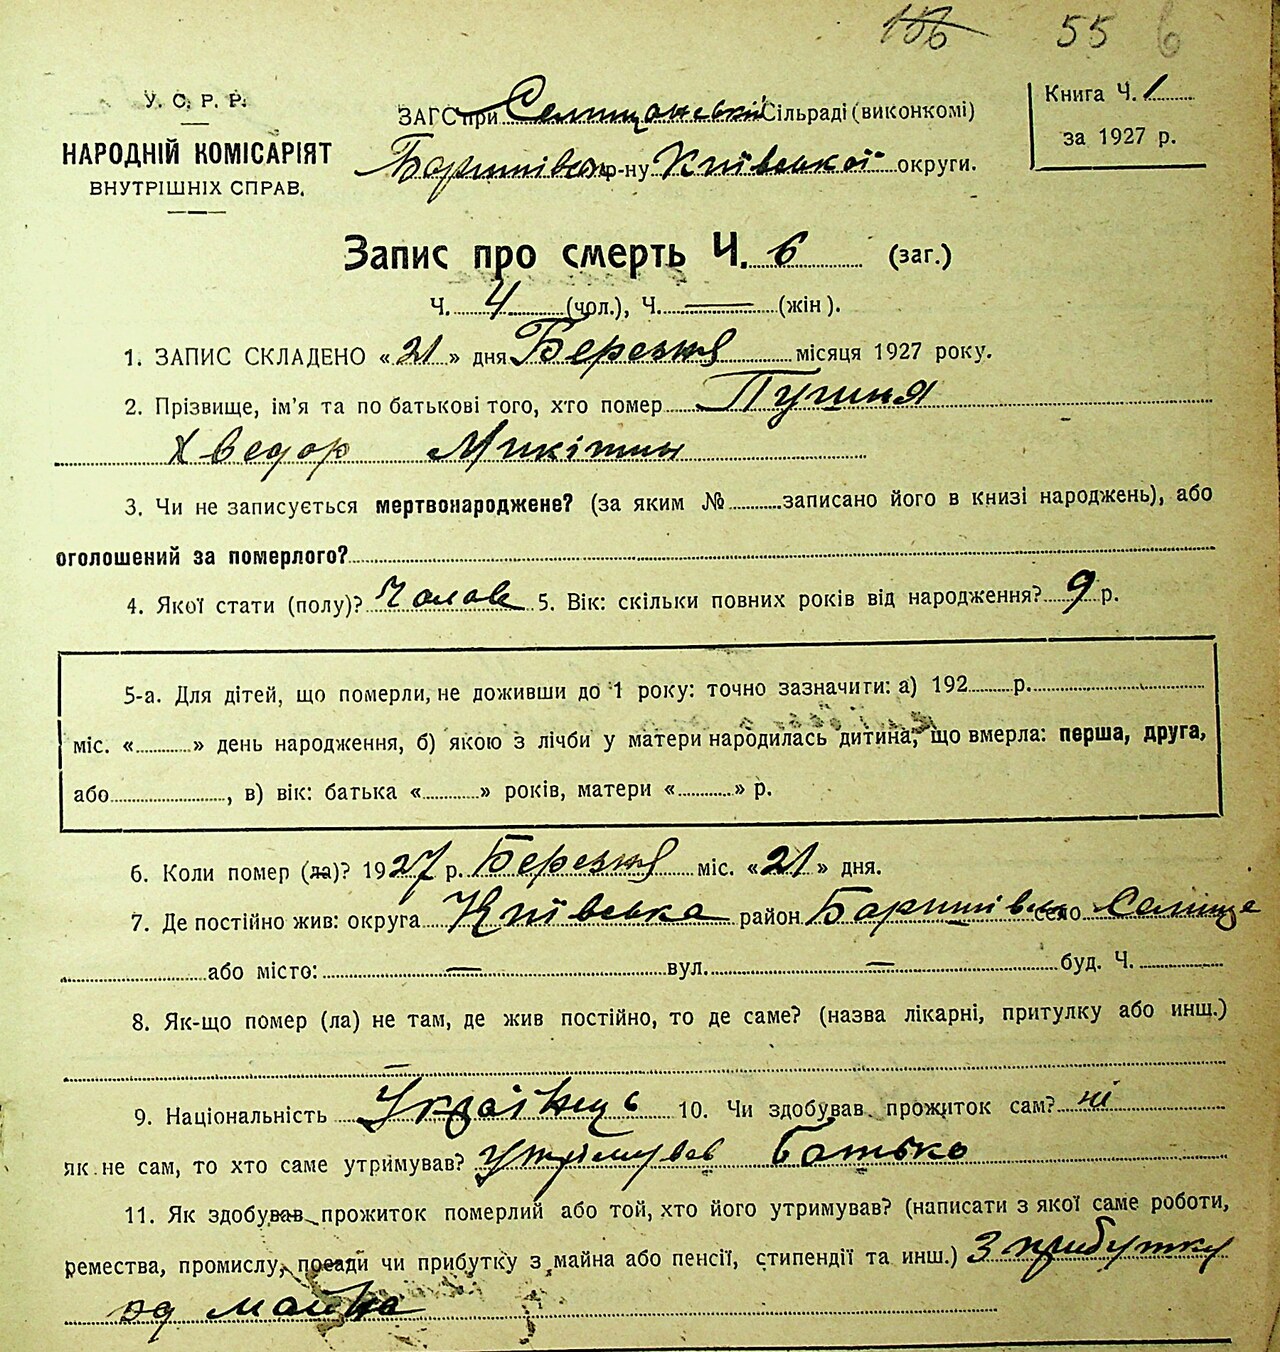 156 55 6
У. С. Р. Р.
НАРОДНІЙ КОМІСАРІЯТ
ВНУТРІШНІХ СПРАВ.
ЗАГС при Селищанській Сільраді (виконкомі)
Баришівсь р-ну Київської округи.
Книга Ч. 1
за 1927 р.
Запис про смерть Ч. 6 (заг.)
Ч. 4 (чол.), Ч. — (жін).
1. ЗАПИС СКЛАДЕНО «21» дня Березня місяця 1927 року.
2. Прізвище, ім'я та по батькові того, хто помер Пушня
Хведор Микітин
3. Чи не записується мертвонароджене? (за яким № записано його в книзі народжень), або
оголошений за померлого?
4. Якої стати (полу)? Чолов 5. Вік: скільки повних років від народження? 9 р.
5-а. Для дітей, що померли, не доживши до 1 року: точно зазначити: а) 192 р.
міс. « » день народження, б) якою з лічби у матери народилась дитина, що вмерла: перша, друга,
або , в) вік: батька « » років, матери « » р.
6. Коли помер (ла)? 1927 р. Березня міс. «21» дня.
7. Де постійно жив: округа Київська район Баришівсь село Селище
або місто: — вул. — буд. Ч.
8. Як-що помер (ла) не там, де жив постійно, то де саме? (назва лікарні, притулку або инш.)
9. Національність Українець 10. Чи здобував прожиток сам? ні
як не сам, то хто саме утримував? утрімував батько
11. Як здобував прожиток померлий або той, хто його утримував? (написати з якої саме роботи,
ремества, промислу, посади чи прибутку з майна або пенсії, стипендії та инш.) З прибутку
од майна